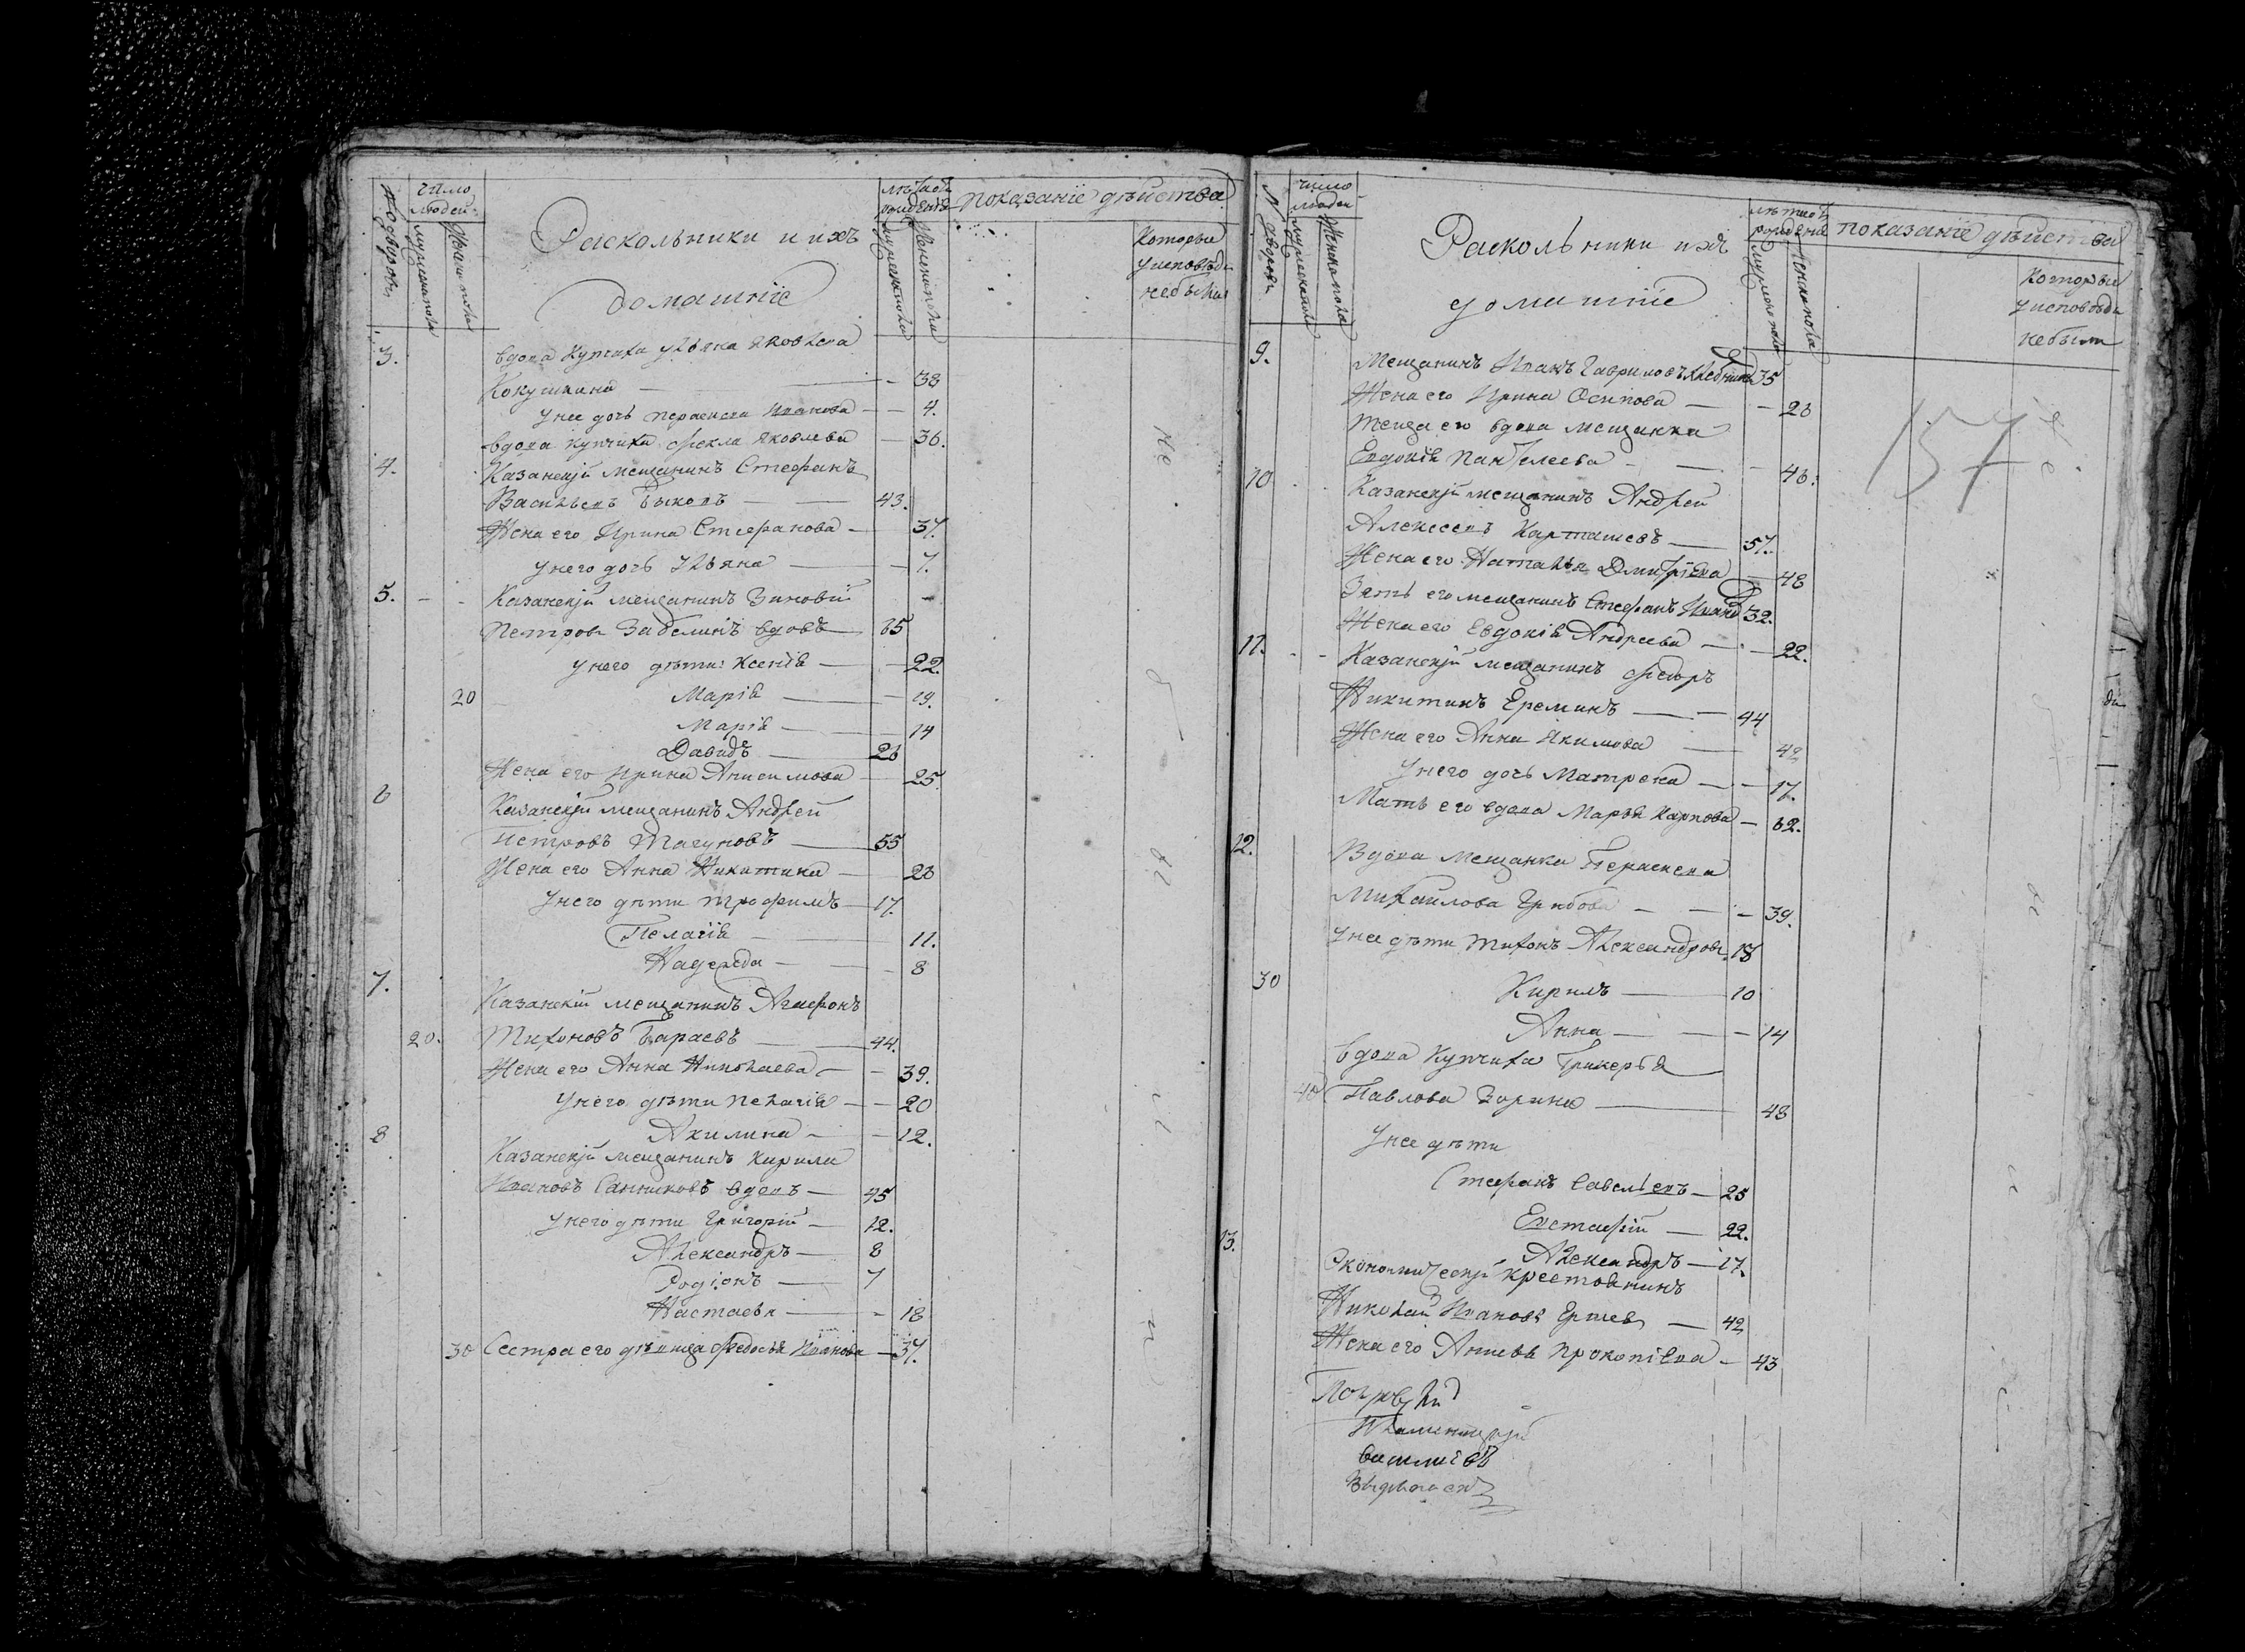 число
людей
лѣтъ отъ
рожденія
показаніе дѣйства
Раскольники и ихъ
домашніе
которые
у исповѣди
небыли
3.
вдова купчиха Ульяна Яковлева
Кокушкина — 38
у нее дочь Пераскева Иванова — 4.
вдова купчиха Фекла Яковлева — 36.
4. Казанскій мещанинъ Стефанъ
Васильевъ Быковъ — 43.
Жена его Ирина Стефанова — 37.
у него дочь Ульяна — 7.
5. Казанскій мещанинъ Зиновій
Петровъ Забелинъ вдовъ — 65
у него дѣти: Ксенія — 22.
20 Марія — 19.
Марія — 14
Давидъ — 26
Жена его Ирина Анисимова — 25.
6
Казанскій мещанинъ Андрей
Петровъ — 55
Жена его Анна Никитина — 28
у него дѣти Трофимъ — 17.
Пелагія — 11.
Надежда — 8
7.
Казанскій мещанинъ Агафонъ
20. Тихоновъ — 44.
Жена его Анна Николаева — 39.
у него дѣти Пелагія — 20
Акилина — 12.
8
Казанскій мещанинъ Кирила
Ивановъ Санниковъ вдовъ — 45
у него дѣти Григорій — 12.
Александръ — 8
Родіонъ — 7
Настасья — 18
30 Сестра его дѣвица Федосья Иванова — 37.
число
людей
лѣтъ отъ
рожденія
показаніе дѣйства
Раскольники ихъ
домашніе
которые
у исповѣди
небыли
157
9.
Мещанинъ Иванъ Гавриловъ Хлебниковъ 35
Жена его Ирина Осипова — 26
Теща его вдова мещанка
Евдокія Пантелеева — 46.
10
Казанскій мещанинъ Андрей
Алексеевъ Карташевъ — 57.
Жена его Наталья Дмитріева — 48
Зять его мещанинъ Стефанъ Ивановъ 32.
Жена его Евдокія Андреева — 22.
11.
Казанскій мещанинъ Федоръ
Никитинъ Ереминъ — 44
Жена его Анна Якимова — 42
у него дочь Матрена — 17.
Мать его вдова Марья Карпова — 62.
12.
Вдова мещанка Пераскева
Михайлова Грибова — 39.
у нее дѣти Тихонъ Александровъ 18
30 Кирилъ — 10
Анна — 14
вдова купчиха Гликерья
40 Павлова Зорина — 48
у нее дѣти
Стефанъ Савельевъ — 25
Евстафій — 22.
Александръ — 17.
13.
Экономическій крестьянинъ
Николай Ивановъ Ершевъ — 42
Жена его Анисья Прокопіева — 43